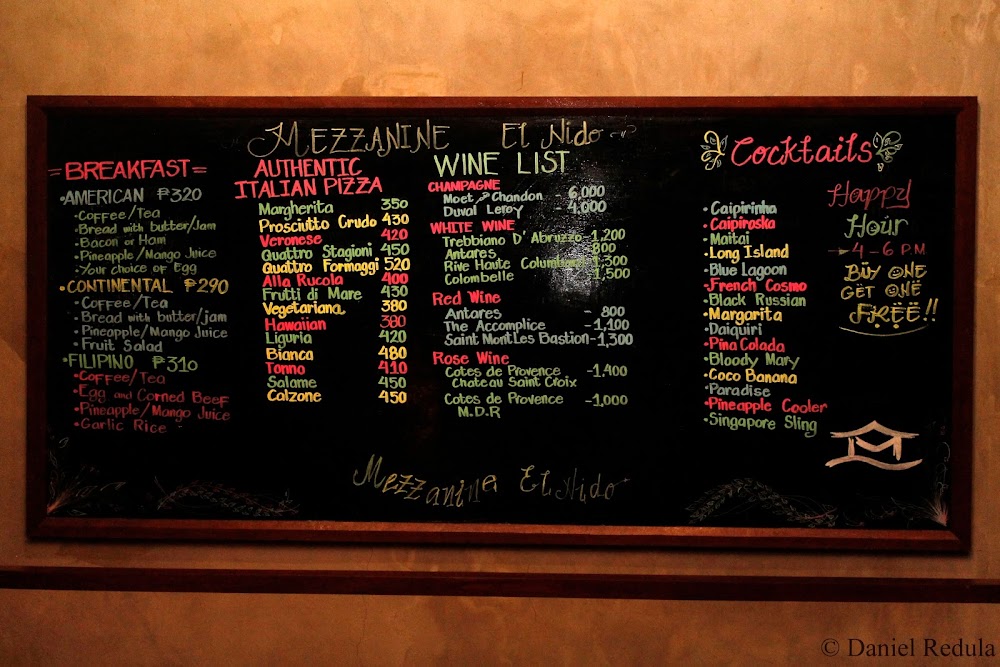 MEZZANINE El Nido
=BREAKFAST=
•AMERICAN ₱320
•Coffee/Tea
•Bread with butter/Jam
•Bacon or Ham
•Pineapple/Mango Juice
•Your choice of Egg
•CONTINENTAL ₱290
•Coffee/Tea
•Bread with butter/jam
•Pineapple/Mango Juice
•Fruit Salad
•FILIPINO ₱310
•Coffee/Tea
•Egg and Corned Beef
•Pineapple/Mango Juice
•Garlic Rice
AUTHENTIC
ITALIAN PIZZA
Margherita 350
Prosciutto Crudo 430
Veronese 420
Quattro Stagioni 450
Quattro Formaggi 520
Alla Rucola 400
Frutti di Mare 430
Vegetariana 380
Hawaiian 380
Liguria 420
Bianca 480
Tonno 410
Salame 450
Calzone 450
WINE LIST
CHAMPAGNE
Moet and Chandon 6,000
Duval Leroy 4,000
WHITE WINE
Trebbiano D'Abruzzo -1,200
Antares 800
Rive Haute Columbard 1,300
Colombelle 1,500
Red Wine
Antares - 800
The Accomplice -1,100
Saint Mont Les Bastion -1,300
Rose Wine
Cotes de Provence -1,400
Chateau Saint Croix
Cotes de Provence -1,000
M.D.R
Cocktails
•Caipirinha
•Caipiroska
•Maitai
•Long Island
•Blue Lagoon
•French Cosmo
•Black Russian
•Margarita
•Daiquiri
•Pina Colada
•Bloody Mary
•Coco Banana
•Paradise
•Pineapple Cooler
•Singapore Sling
Happy
Hour
4-6 P.M
BUY ONE
GET ONE
FREE!!
Mezzanine El Nido
© Daniel Redula